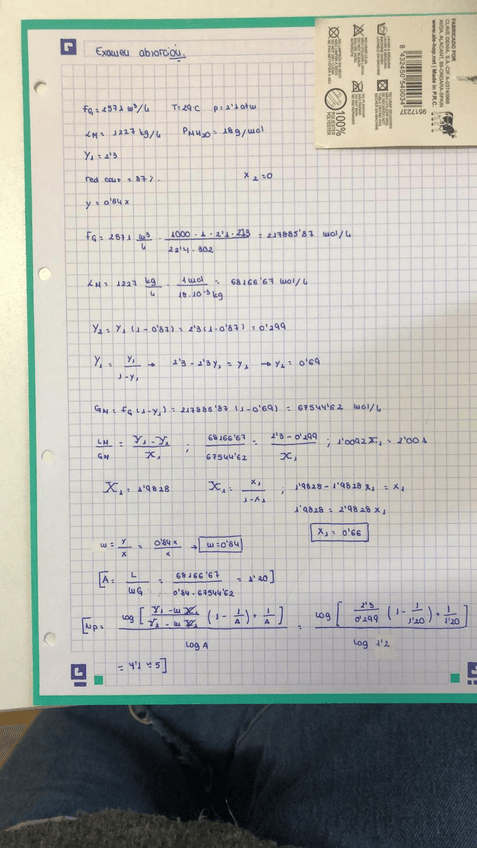 Examen absorción.
FG = 2571 m³/h T = 29°C p = 2'1 atm
LM = 1227 kg/h PM H2O = 18 g/mol
Y1 = 2'3
red cont = 87%. X2 = 0
y = 0'84x
FG = 2571 m³/h · 1000 · 1 · 2'1 · 273 / 22'4 · 302 = 217885'87 mol/h
LM = 1227 kg/h · 1 mol / 18·10⁻³ kg = 68166'67 mol/h
Y2 = Y1 (1 - 0'87) = 2'3 (1 - 0'87) = 0'299
Y1 = y1 / 1 - y1 → 2'3 - 2'3y1 = y1 → y1 = 0'69
GM = FG (1 - y1) = 217885'87 (1 - 0'69) = 67544'62 mol/h
LM / GM = Y1 - Y2 / X1 ; 68166'67 / 67544'62 = 2'3 - 0'299 / X1 ; 1'0092 X1 = 2'001
X1 = 1'9828 X1 = x1 / 1 - x1 ; 1'9828 - 1'9828 x1 = x1
1'9828 = 2'9828 x1
x1 = 0'66
m = y / x = 0'84x / x → m = 0'84
[A = L / mG = 68166'67 / 0'84 · 67544'62 = 1'20]
[Np = log [ Y1 - m X2 / Y2 - m X2 (1 - 1/A) + 1/A ] / log A = log [ 2'3 / 0'299 (1 - 1/1'20) + 1/1'20 ] / log 1'2
= 4'1 ≈ 5]
FABRICADO POR
www.ale-hop.net | Made in P.R.C.
8 432450 540034
100%
POLIESTER
POLYESTER